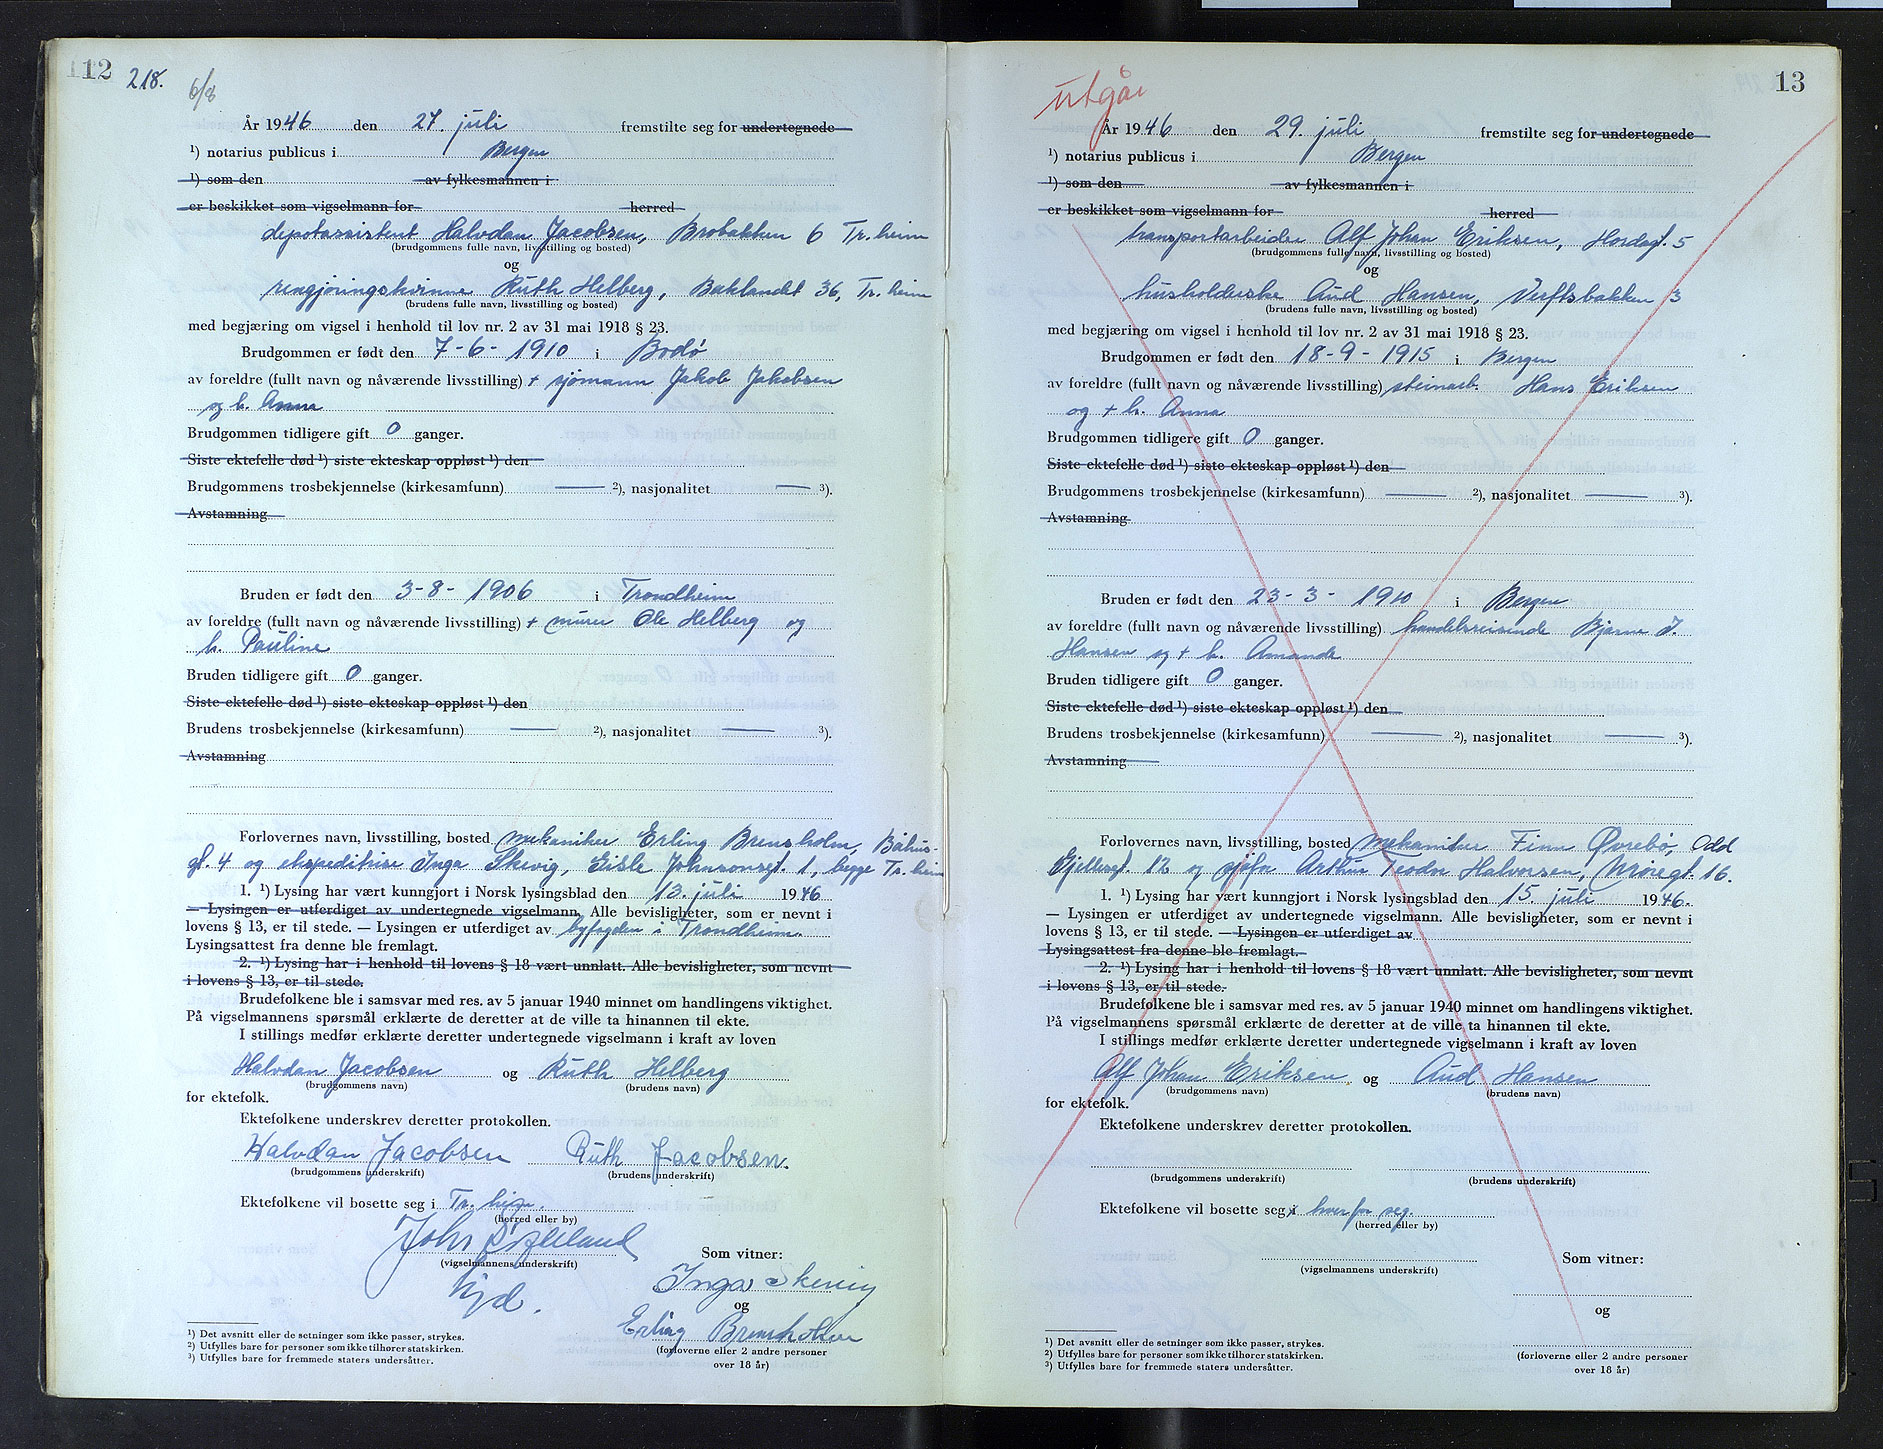 12 218. 6/8
År 1946 den 27. juli fremstilte seg for undertegnede
¹) notarius publicus i Bergen
¹) som den av fylkesmannen i
er beskikket som vigselmann for herred
depotassistent Halvdan Jacobsen, Brobakken 6 Tr. heim
(brudgommens fulle navn, livsstilling og bosted)
og
rengjøringskvinne Ruth Helberg, Baklandet 36, Tr. heim
(brudens fulle navn, livsstilling og bosted)
med begjæring om vigsel i henhold til lov nr. 2 av 31 mai 1918 § 23.
Brudgommen er født den 7-6-1910 i Bodø
av foreldre (fullt navn og nåværende livsstilling) + sjømann Jakob Jakobsen
og h. Anna
Brudgommen tidligere gift 0 ganger.
Siste ektefelle død ¹) siste ekteskap oppløst ¹) den
Brudgommens trosbekjennelse (kirkesamfunn) — ²), nasjonalitet — ³).
Avstamning
Bruden er født den 3-8-1906 i Trondheim
av foreldre (fullt navn og nåværende livsstilling) + murer Ole Helberg og
h. Pauline
Bruden tidligere gift 0 ganger.
Siste ektefelle død ¹) siste ekteskap oppløst ¹) den
Brudens trosbekjennelse (kirkesamfunn) — ²), nasjonalitet — ³).
Avstamning
Forlovernes navn, livsstilling, bosted mekaniker Erling Brensholm, Båhus-
gt. 4 og ekspeditrise Inga Skevig, Gisle Johnsonsgt. 1, begge Tr. heim
1. ¹) Lysing har vært kunngjort i Norsk lysingsblad den 13. juli 1946
— Lysingen er utferdiget av undertegnede vigselmann. Alle bevisligheter, som er nevnt i
lovens § 13, er til stede. — Lysingen er utferdiget av byfogden i Trondheim.
Lysingsattest fra denne ble fremlagt.
2. ¹) Lysing har i henhold til lovens § 18 vært unnlatt. Alle bevisligheter, som nevnt
i lovens § 13, er til stede.
Brudefolkene ble i samsvar med res. av 5 januar 1940 minnet om handlingens viktighet.
På vigselmannens spørsmål erklærte de deretter at de ville ta hinannen til ekte.
I stillings medfør erklærte deretter undertegnede vigselmann i kraft av loven
Halvdan Jacobsen og Ruth Helberg
(brudgommens navn) (brudens navn)
for ektefolk.
Ektefolkene underskrev deretter protokollen.
Halvdan Jacobsen Ruth Jacobsen.
(brudgommens underskrift) (brudens underskrift)
Ektefolkene vil bosette seg i Tr. heim.
(herred eller by)
(vigselmannens underskrift) Som vitner:
Inga Skevig
og
Erling Brensholm
(forloverne eller 2 andre personer
over 18 år)
¹) Det avsnitt eller de setninger som ikke passer, strykes.
²) Utfylles bare for personer som ikke tilhører statskirken.
³) Utfylles bare for fremmede staters undersåtter.
utgår 13
År 1946 den 29. juli fremstilte seg for undertegnede
¹) notarius publicus i Bergen
¹) som den av fylkesmannen i
er beskikket som vigselmann for herred
transportarbeider Alf Johan Eriksen, Hordagt. 5
(brudgommens fulle navn, livsstilling og bosted)
og
husholderske Aud Hansen, Verftsbakken 3
(brudens fulle navn, livsstilling og bosted)
med begjæring om vigsel i henhold til lov nr. 2 av 31 mai 1918 § 23.
Brudgommen er født den 18-9-1915 i Bergen
av foreldre (fullt navn og nåværende livsstilling) steinarb. Hans Eriksen
og + h. Anna
Brudgommen tidligere gift 0 ganger.
Siste ektefelle død ¹) siste ekteskap oppløst ¹) den
Brudgommens trosbekjennelse (kirkesamfunn) — ²), nasjonalitet — ³).
Avstamning
Bruden er født den 23-3-1910 i Bergen
av foreldre (fullt navn og nåværende livsstilling) handelsreisende Bjarne J.
Hansen og + h. Amanda
Bruden tidligere gift 0 ganger.
Siste ektefelle død ¹) siste ekteskap oppløst ¹) den
Brudens trosbekjennelse (kirkesamfunn) — ²), nasjonalitet — ³).
Avstamning
Forlovernes navn, livsstilling, bosted mekaniker Finn Øvrebø, Odd
Gjellesgt. 12 og sjåfør Arthur Teodor Halvorsen, Møregt. 16.
1. ¹) Lysing har vært kunngjort i Norsk lysingsblad den 15 juli 1946.
— Lysingen er utferdiget av undertegnede vigselmann. Alle bevisligheter, som er nevnt i
lovens § 13, er til stede. — Lysingen er utferdiget av
Lysingsattest fra denne ble fremlagt.
2. ¹) Lysing har i henhold til lovens § 18 vært unnlatt. Alle bevisligheter, som nevnt
i lovens § 13, er til stede.
Brudefolkene ble i samsvar med res. av 5 januar 1940 minnet om handlingens viktighet.
På vigselmannens spørsmål erklærte de deretter at de ville ta hinannen til ekte.
I stillings medfør erklærte deretter undertegnede vigselmann i kraft av loven
Alf Johan Eriksen og Aud Hansen
(brudgommens navn) (brudens navn)
for ektefolk.
Ektefolkene underskrev deretter protokollen.
(brudgommens underskrift) (brudens underskrift)
Ektefolkene vil bosette seg i hver for seg.
(herred eller by)
(vigselmannens underskrift) Som vitner:
og
(forloverne eller 2 andre personer
over 18 år)
¹) Det avsnitt eller de setninger som ikke passer, strykes.
²) Utfylles bare for personer som ikke tilhører statskirken.
³) Utfylles bare for fremmede staters undersåtter.